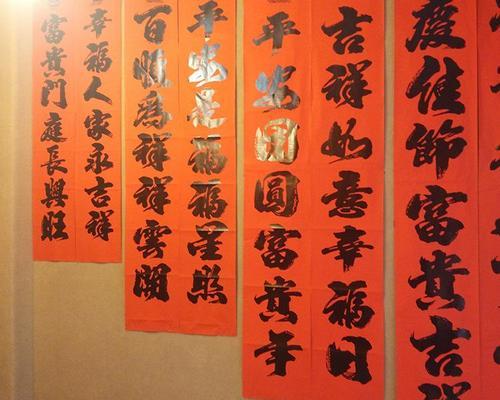 度佳節富貴吉
吉祥如意幸福日
平安團圓富貴年
平安是福福星照
百順為祥祥雲開
幸福人家永吉祥
富貴門庭長興旺